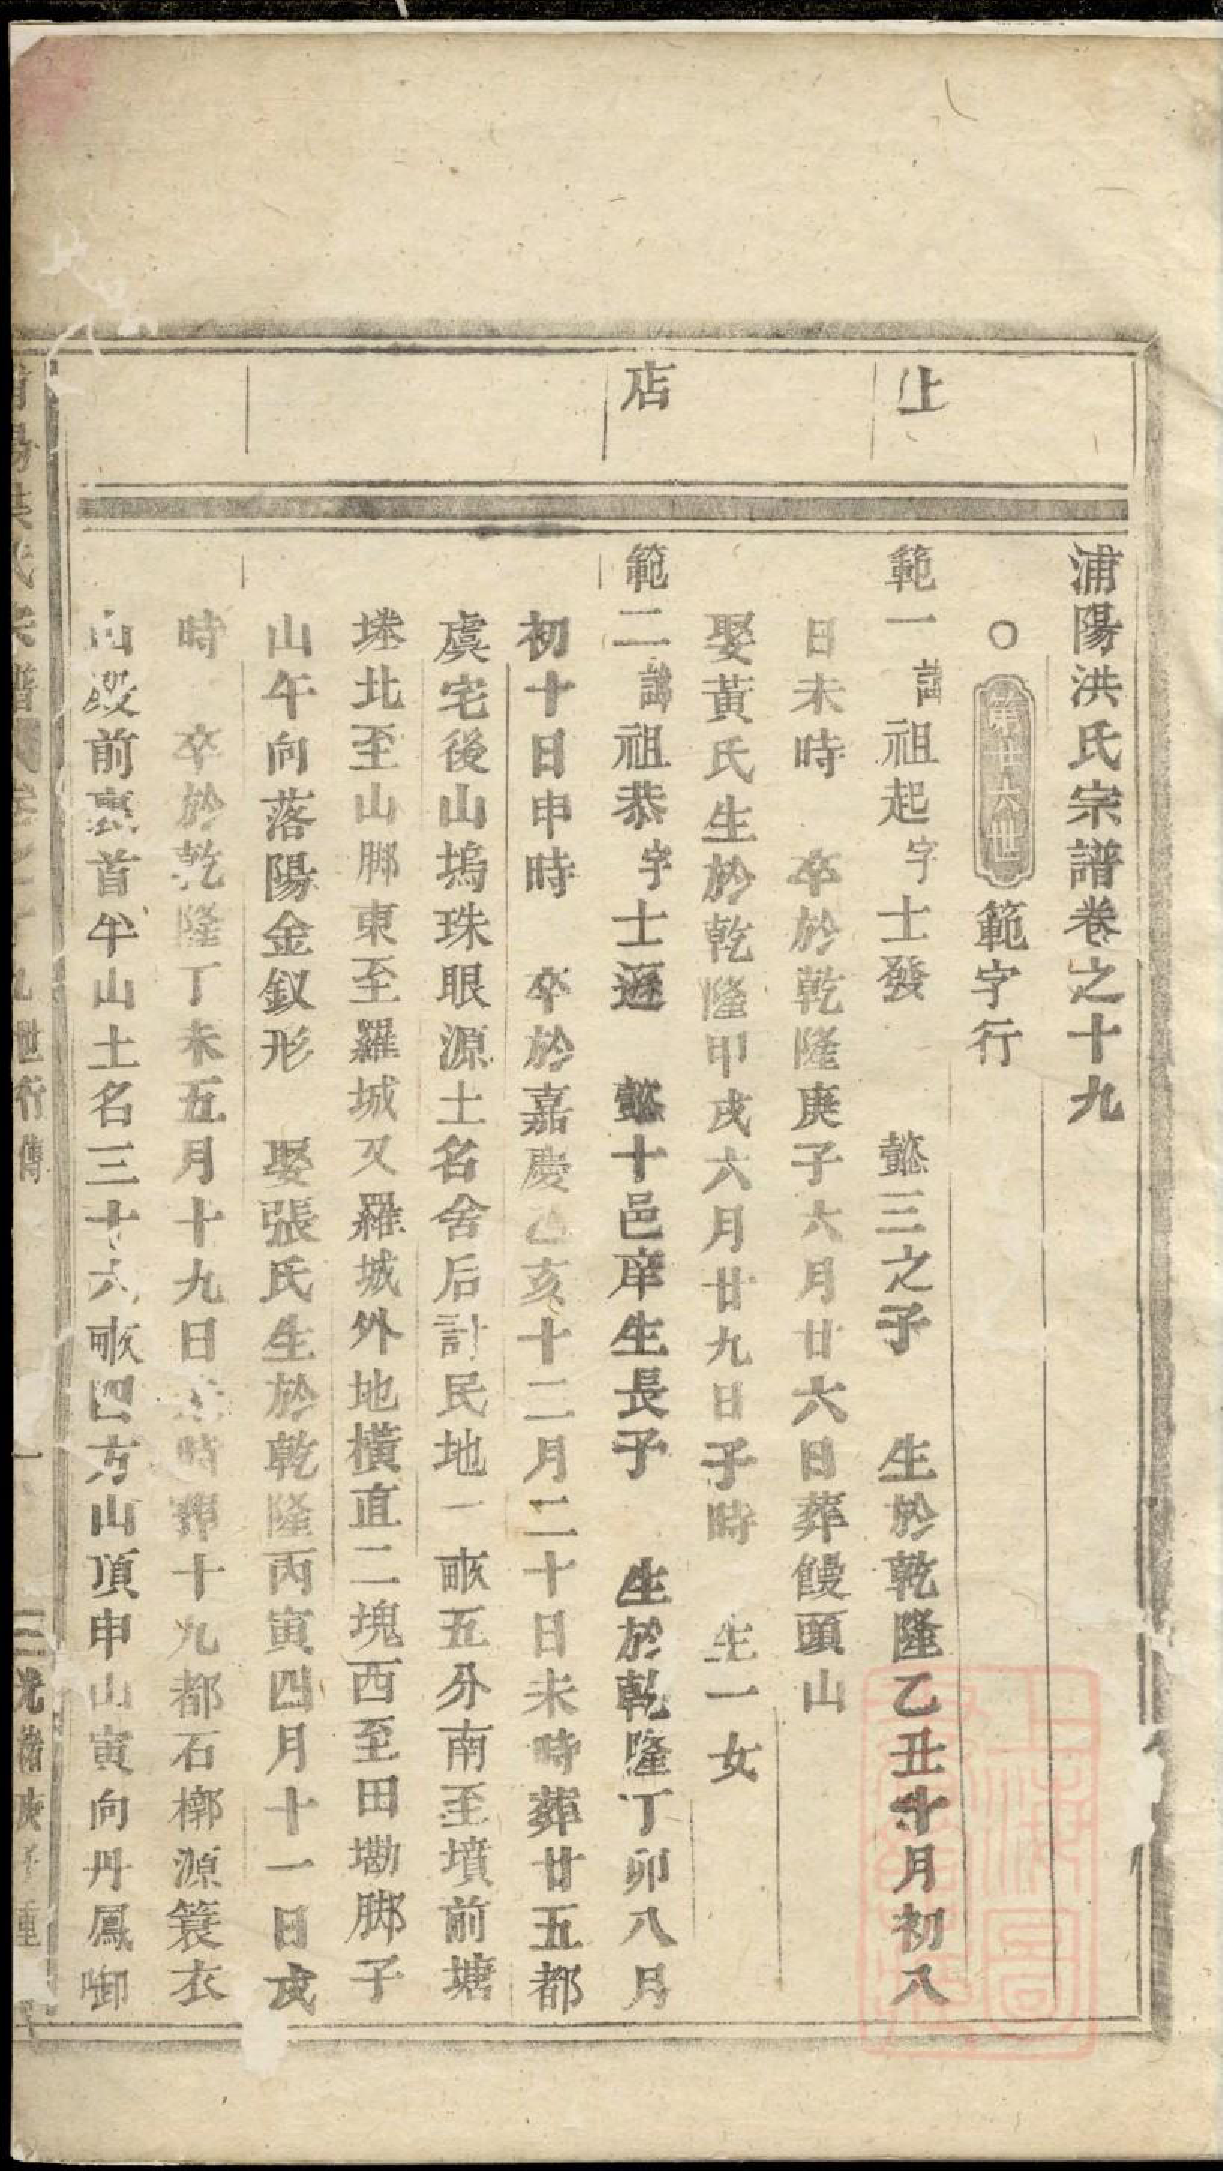 浦陽洪氏宗譜卷之十九
○第廿六世範字行
上
範一諱祖起字士發 懿三之子 生於乾隆乙丑十月初八
日未時 卒於乾隆庚子六月廿六日葬饅頭山
娶黃氏生於乾隆甲戌六月廿九日子時 生一女
店
範二諱祖恭字士遜 懿十邑庠生長子 生於乾隆丁卯八月
初十日申時 卒於嘉慶乙亥十二月二十日未時葬廿五都
虞宅後山塢珠眼源土名舍后計民地一畝五分南至墳前塘
塍北至山腳東至羅城又羅城外地橫直二塊西至田墈腳子
山午向落陽金釵形 娶張氏生於乾隆丙寅四月十一日戌
時 卒於乾隆丁未五月十九日時葬十九都石槨源簑衣
山殿前裏首半山土名三十六畝四方山頂申山寅向丹鳳啣
浦陽洪氏宗譜卷之十九 世行傳 一 光緒庚子重